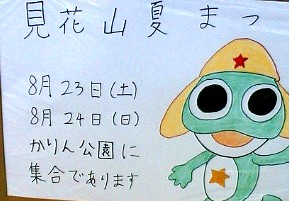 見花山夏まつ
8月23日(土)
8月24日(日)
かりん公園に
集合であります